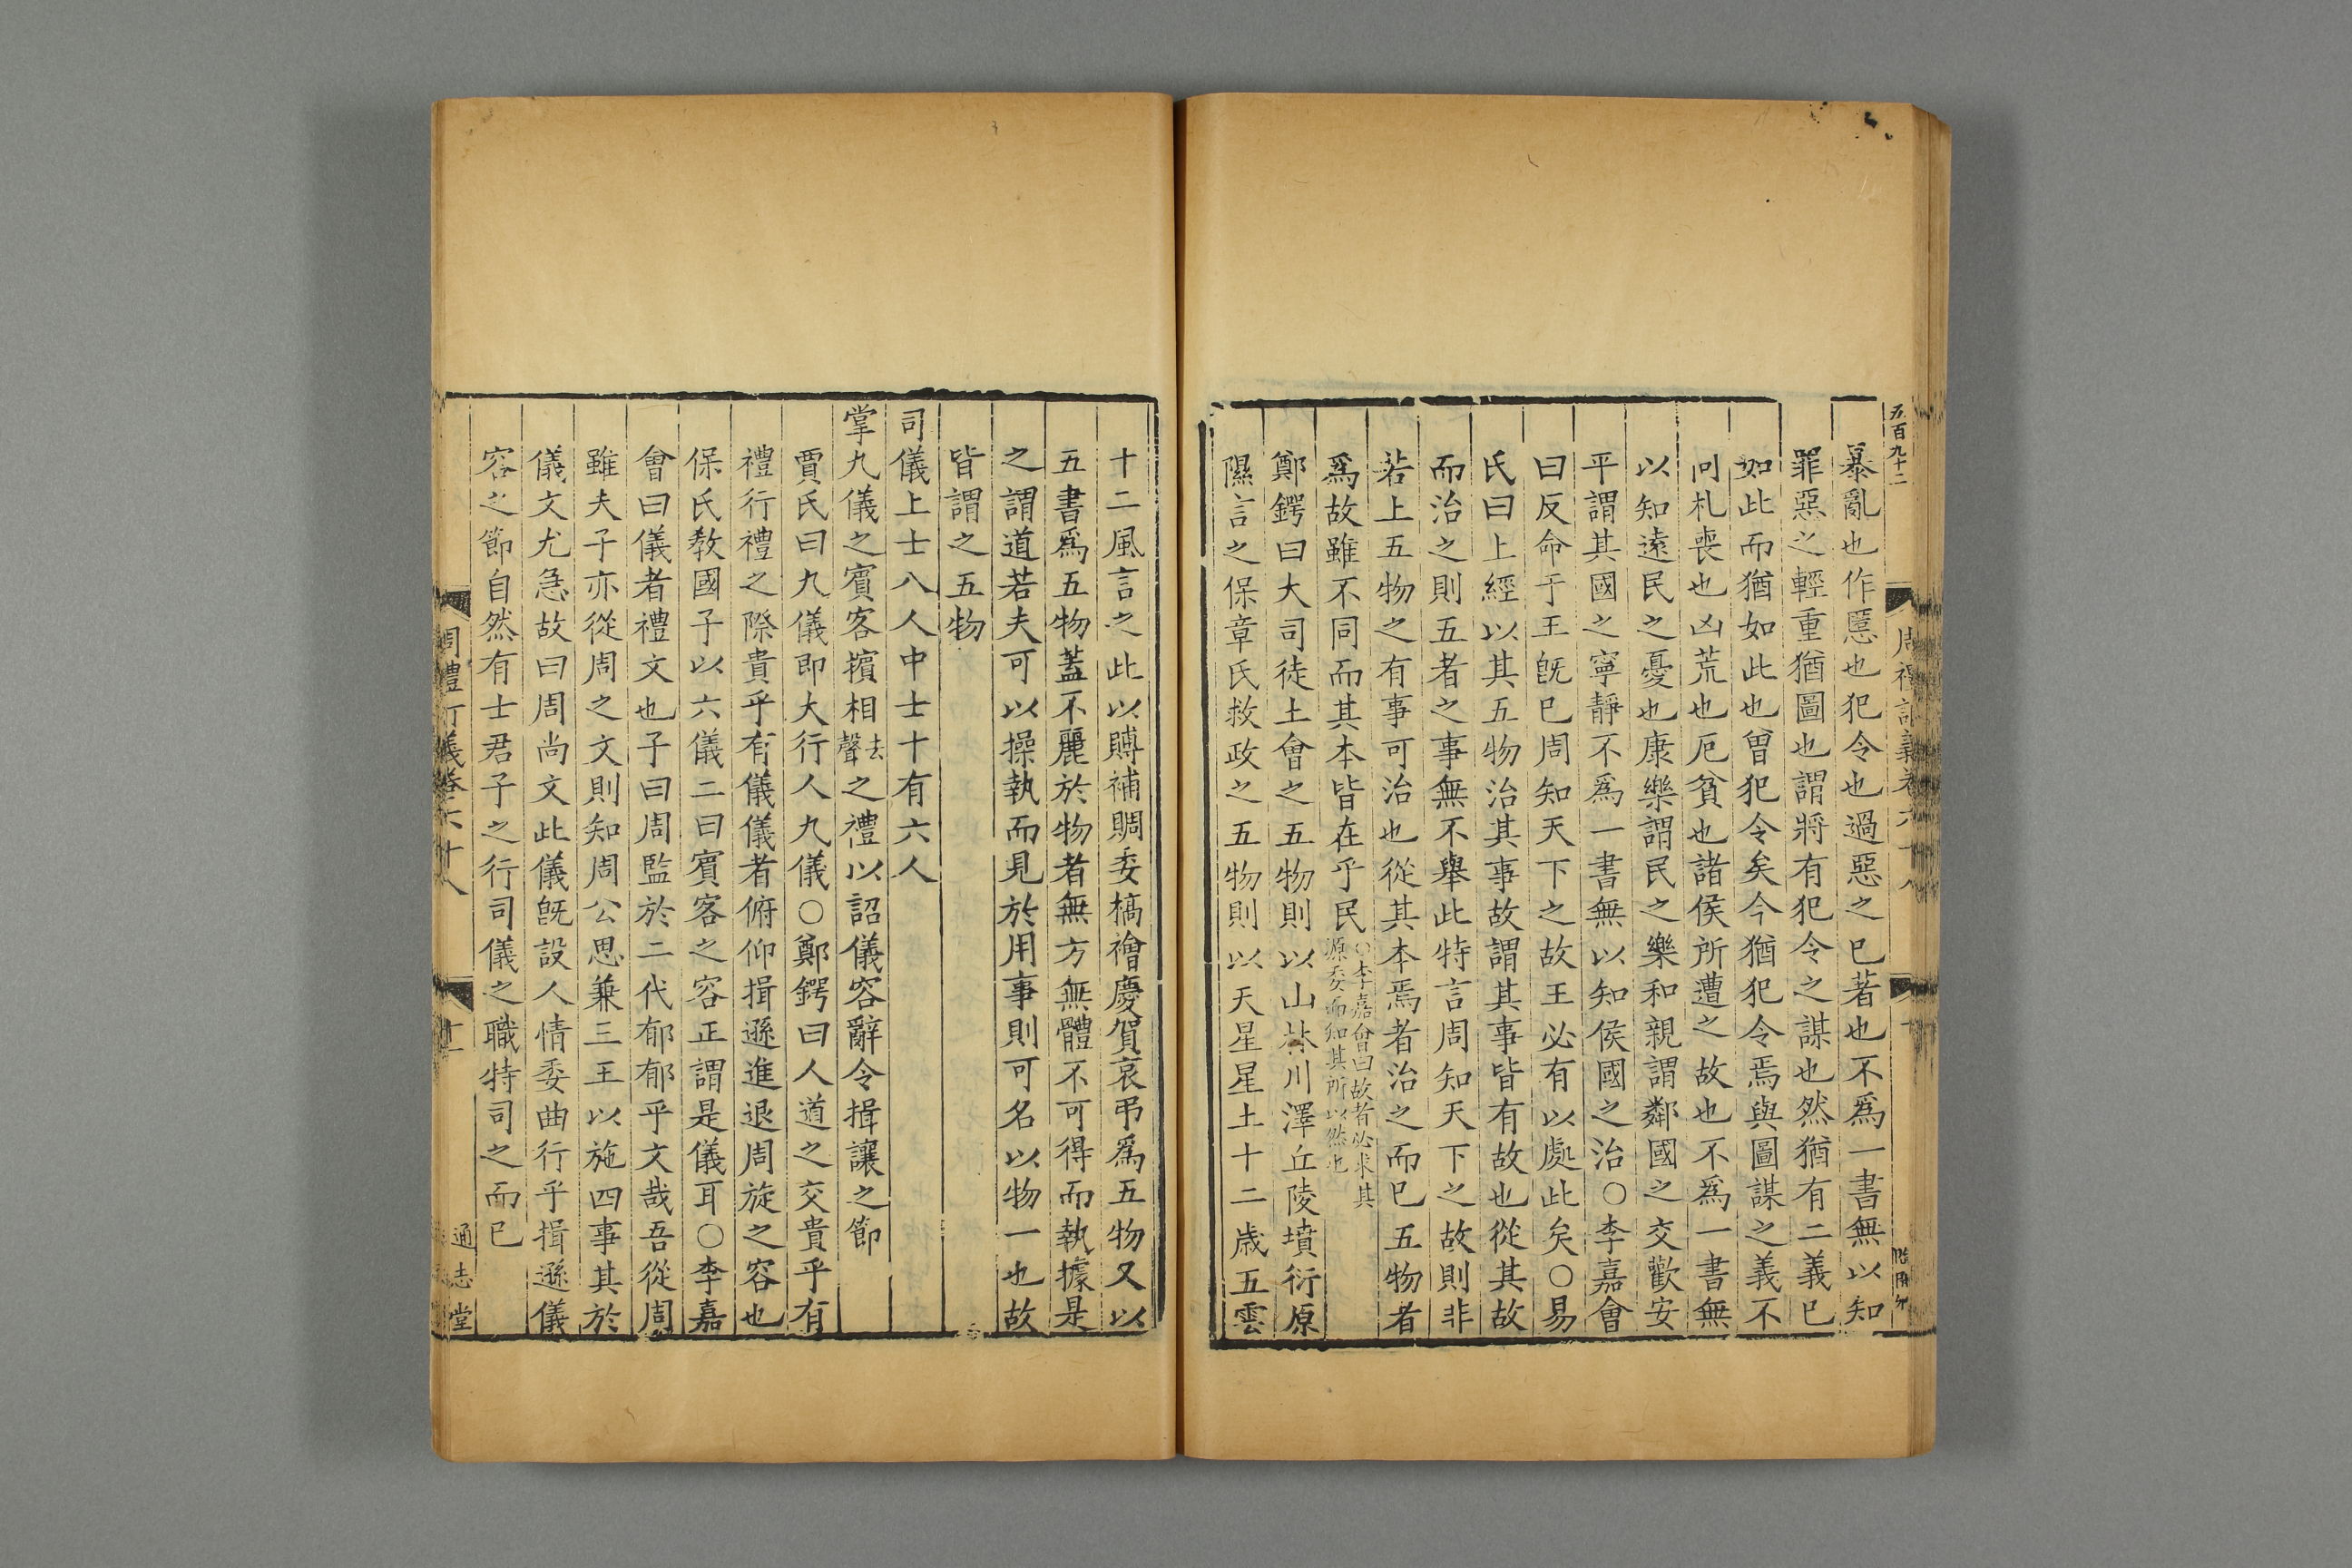 五百九十二
暴亂也作慝也犯令也過惡之已著也不爲一書無以知
罪惡之輕重猶圖也謂將有犯令之謀也然猶有二義已
如此而猶如此也曾犯令矣今猶犯令焉與圖謀之義不
同札喪也凶荒也厄貧也諸侯所遭之故也不爲一書無
以知逺民之憂也康樂謂民之樂和親謂鄰國之交歡安
平謂其國之寧靜不爲一書無以知侯國之治○李嘉會
曰反命于王旣已周知天下之故王必有以處此矣○易
氏曰上經以其五物治其事故謂其事皆有故也從其故
而治之則五者之事無不舉此特言周知天下之故則非
若上五物之有事可治也從其本焉者治之而已五物者
爲故雖不同而其本皆在乎民○李嘉會曰故者必求其
源委而知其所以然也
鄭鍔曰大司徒土會之五物則以山林川澤丘陵墳衍原
隰言之保章氏救政之五物則以天星星土十二歳五雲
十二風言之此以賻補賙委槁禬慶賀哀弔爲五物又以
五書爲五物蓋不麗於物者無方無體不可得而執據是
之謂道若夫可以操執而見於用事則可名以物一也故
皆謂之五物
司儀上士八人中士十有六人
掌九儀之賓客擯相去聲之禮以詔儀容辭令揖讓之節
賈氏曰九儀即大行人九儀○鄭鍔曰人道之交貴乎有
禮行禮之際貴乎有儀儀者俯仰揖遜進退周旋之容也
保氏敎國子以六儀二曰賓客之容正謂是儀耳○李嘉
會曰儀者禮文也子曰周監於二代郁郁乎文哉吾從周
雖夫子亦從周之文則知周公思兼三王以施四事其於
儀文尤急故曰周尚文此儀旣設人情委曲行乎揖遜儀
容之節自然有士君子之行司儀之職特司之而已
周禮訂義卷六十八
十一
通志堂